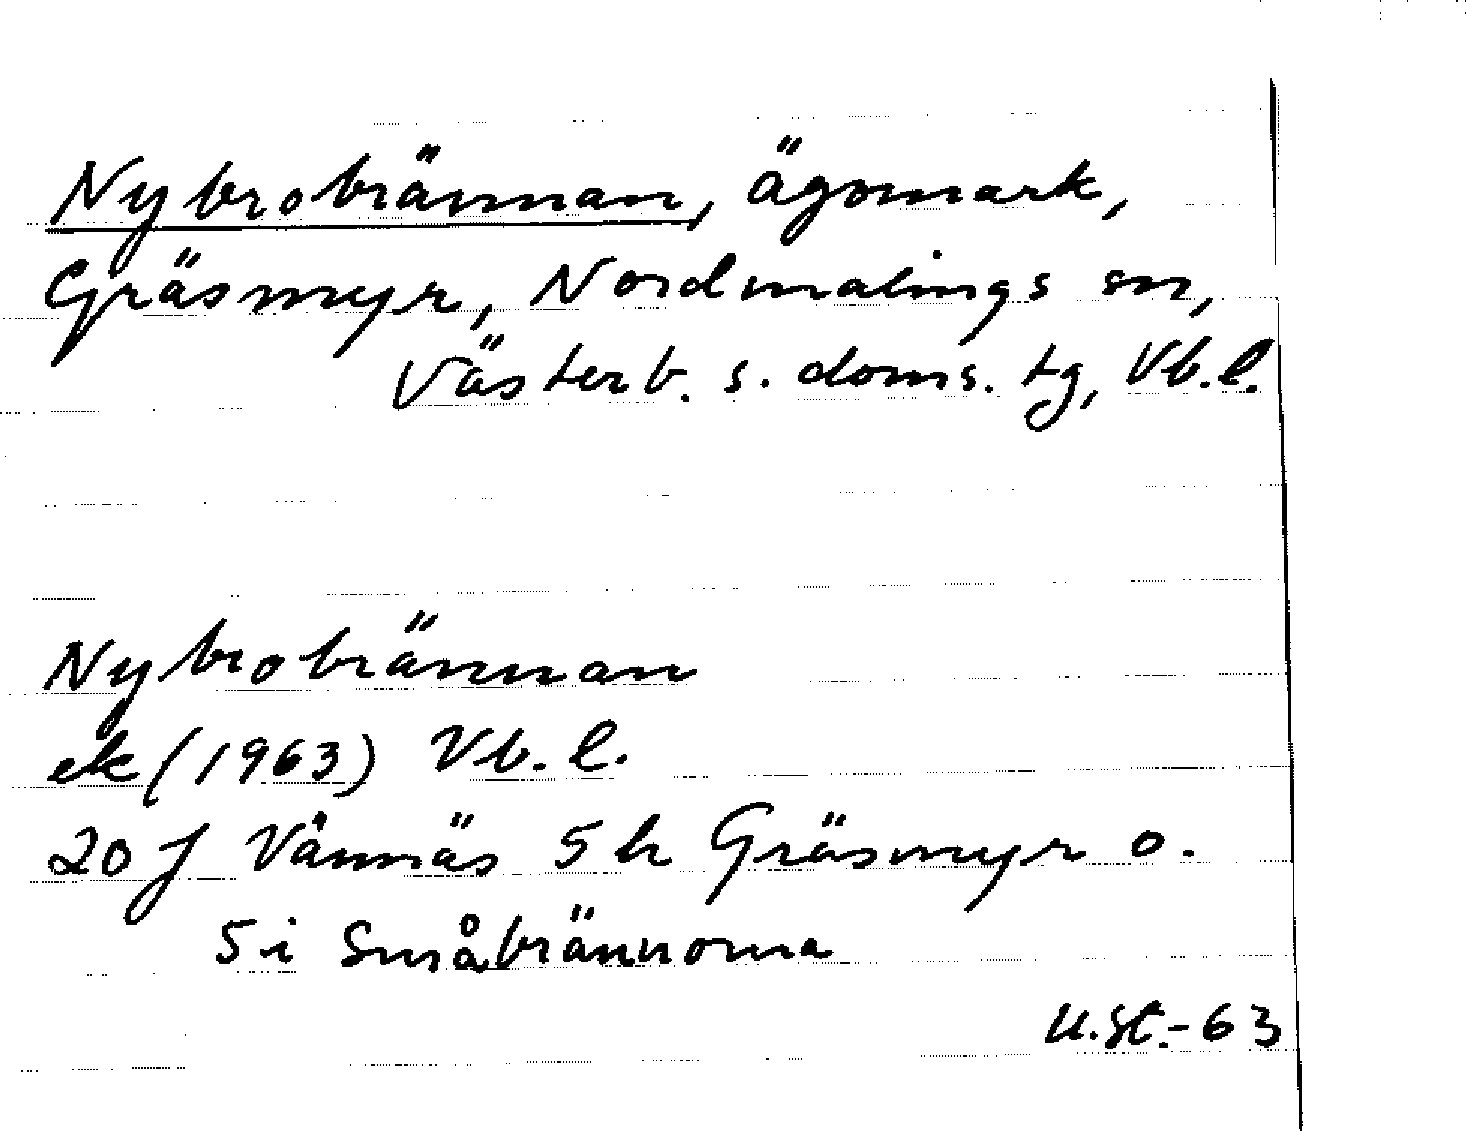 Nybrobrännan, ägomark,
Gräsmyr, Nordmalings sn,
Västerb. s. doms. tg, Vb.l.
Nybrobrännan
ek (1963) Vb. l.
20 J Vännäs 5 h Gräsmyr o.
5 i Småbrännorna
U.St.-63